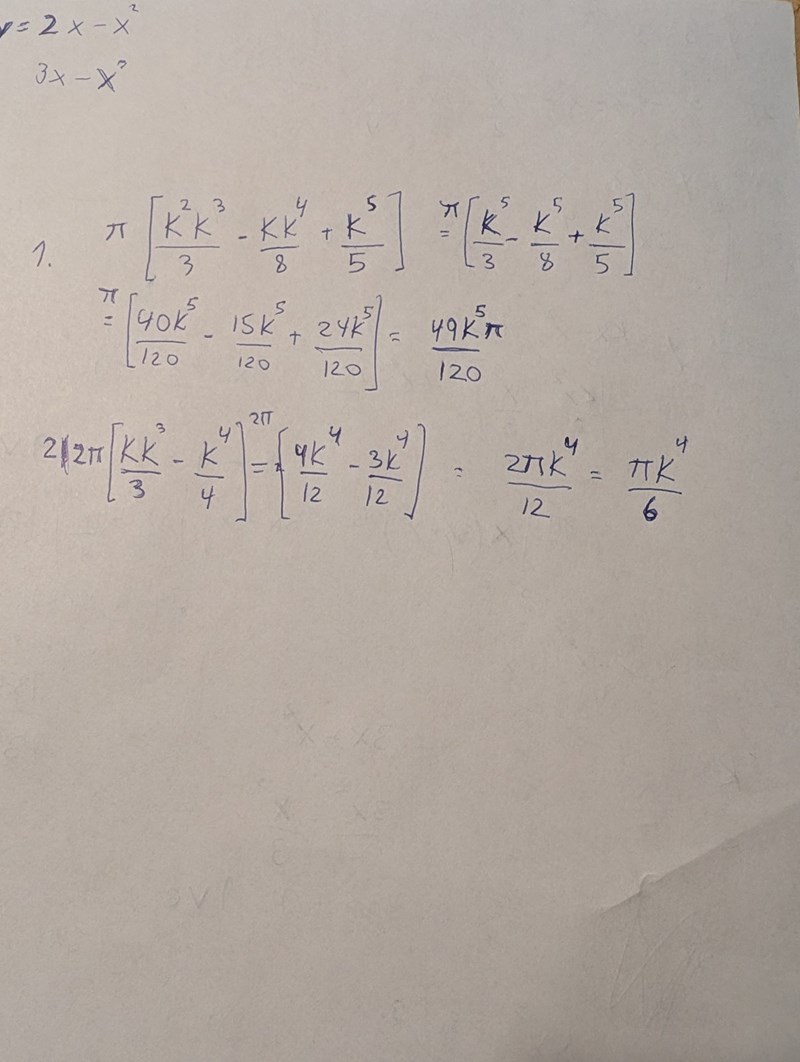 y = 2x - x²
3x - x²
1. π [K²K³/3 - KK⁴/8 + K⁵/5] =π [K⁵/3 - K⁵/8 + K⁵/5]
=π [40K⁵/120 - 15K⁵/120 + 24K⁵/120] = 49K⁵π/120
2 2π [KK³/3 - K⁴/4] =2π [4K⁴/12 - 3K⁴/12] = 2πK⁴/12 = πK⁴/6